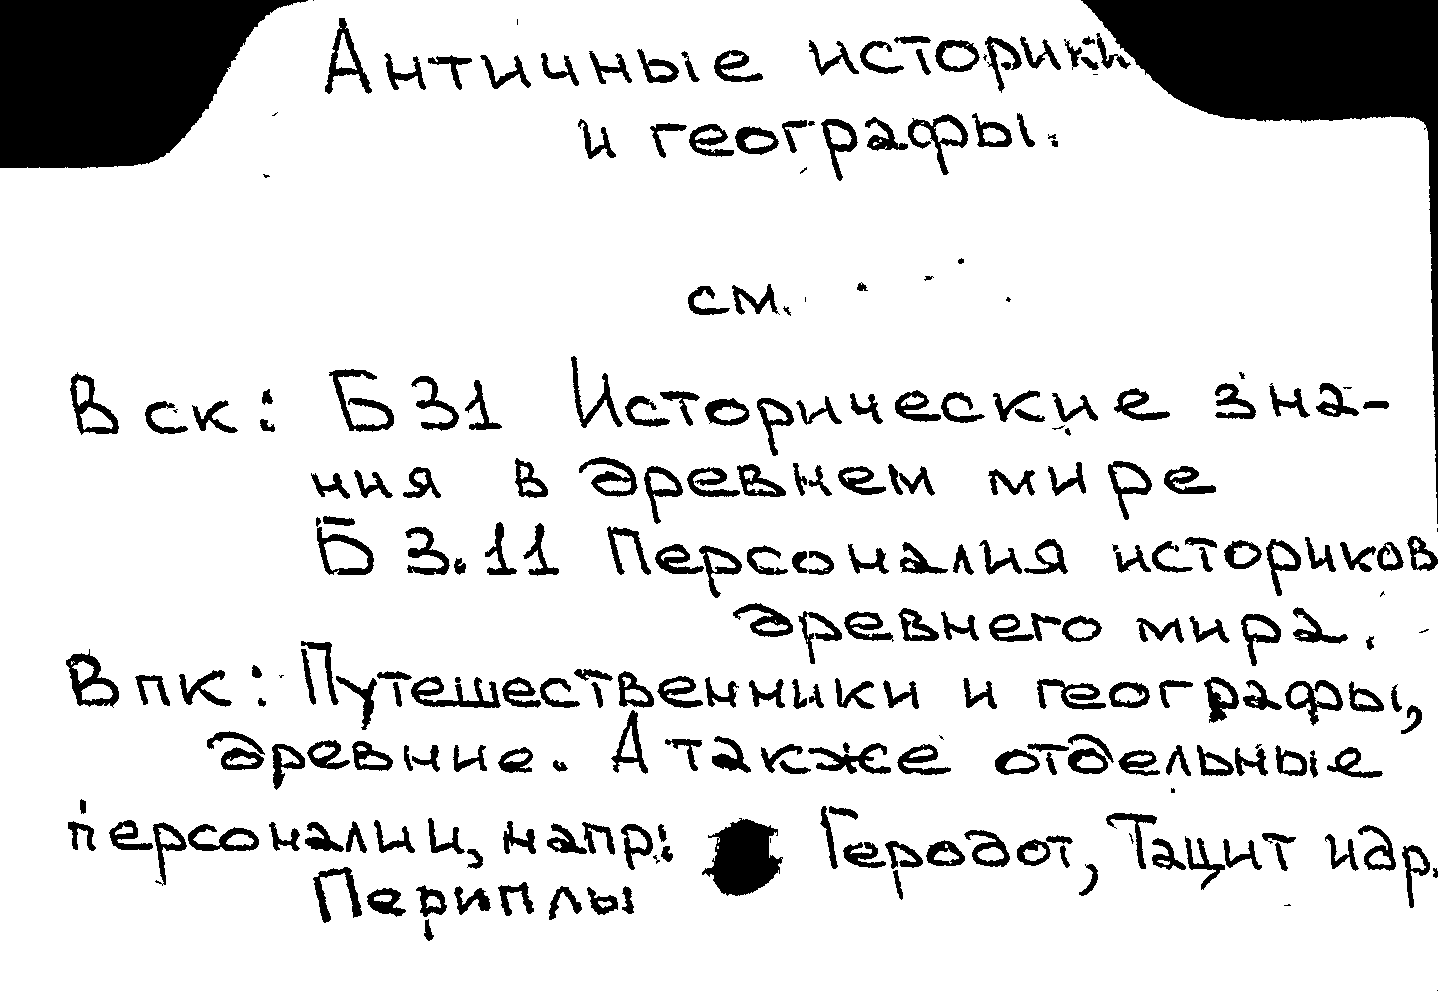 Античные историки
и географы.
см.
В ск: Б 31 Исторические зна-
ния в древнем мире
Б 3.11 Персоналия историков
древнего мира.
В пк: Путешественники и географы,
древние. А также отдельные
персоналии, напр: Геродот, Тацит и др.
Периплы